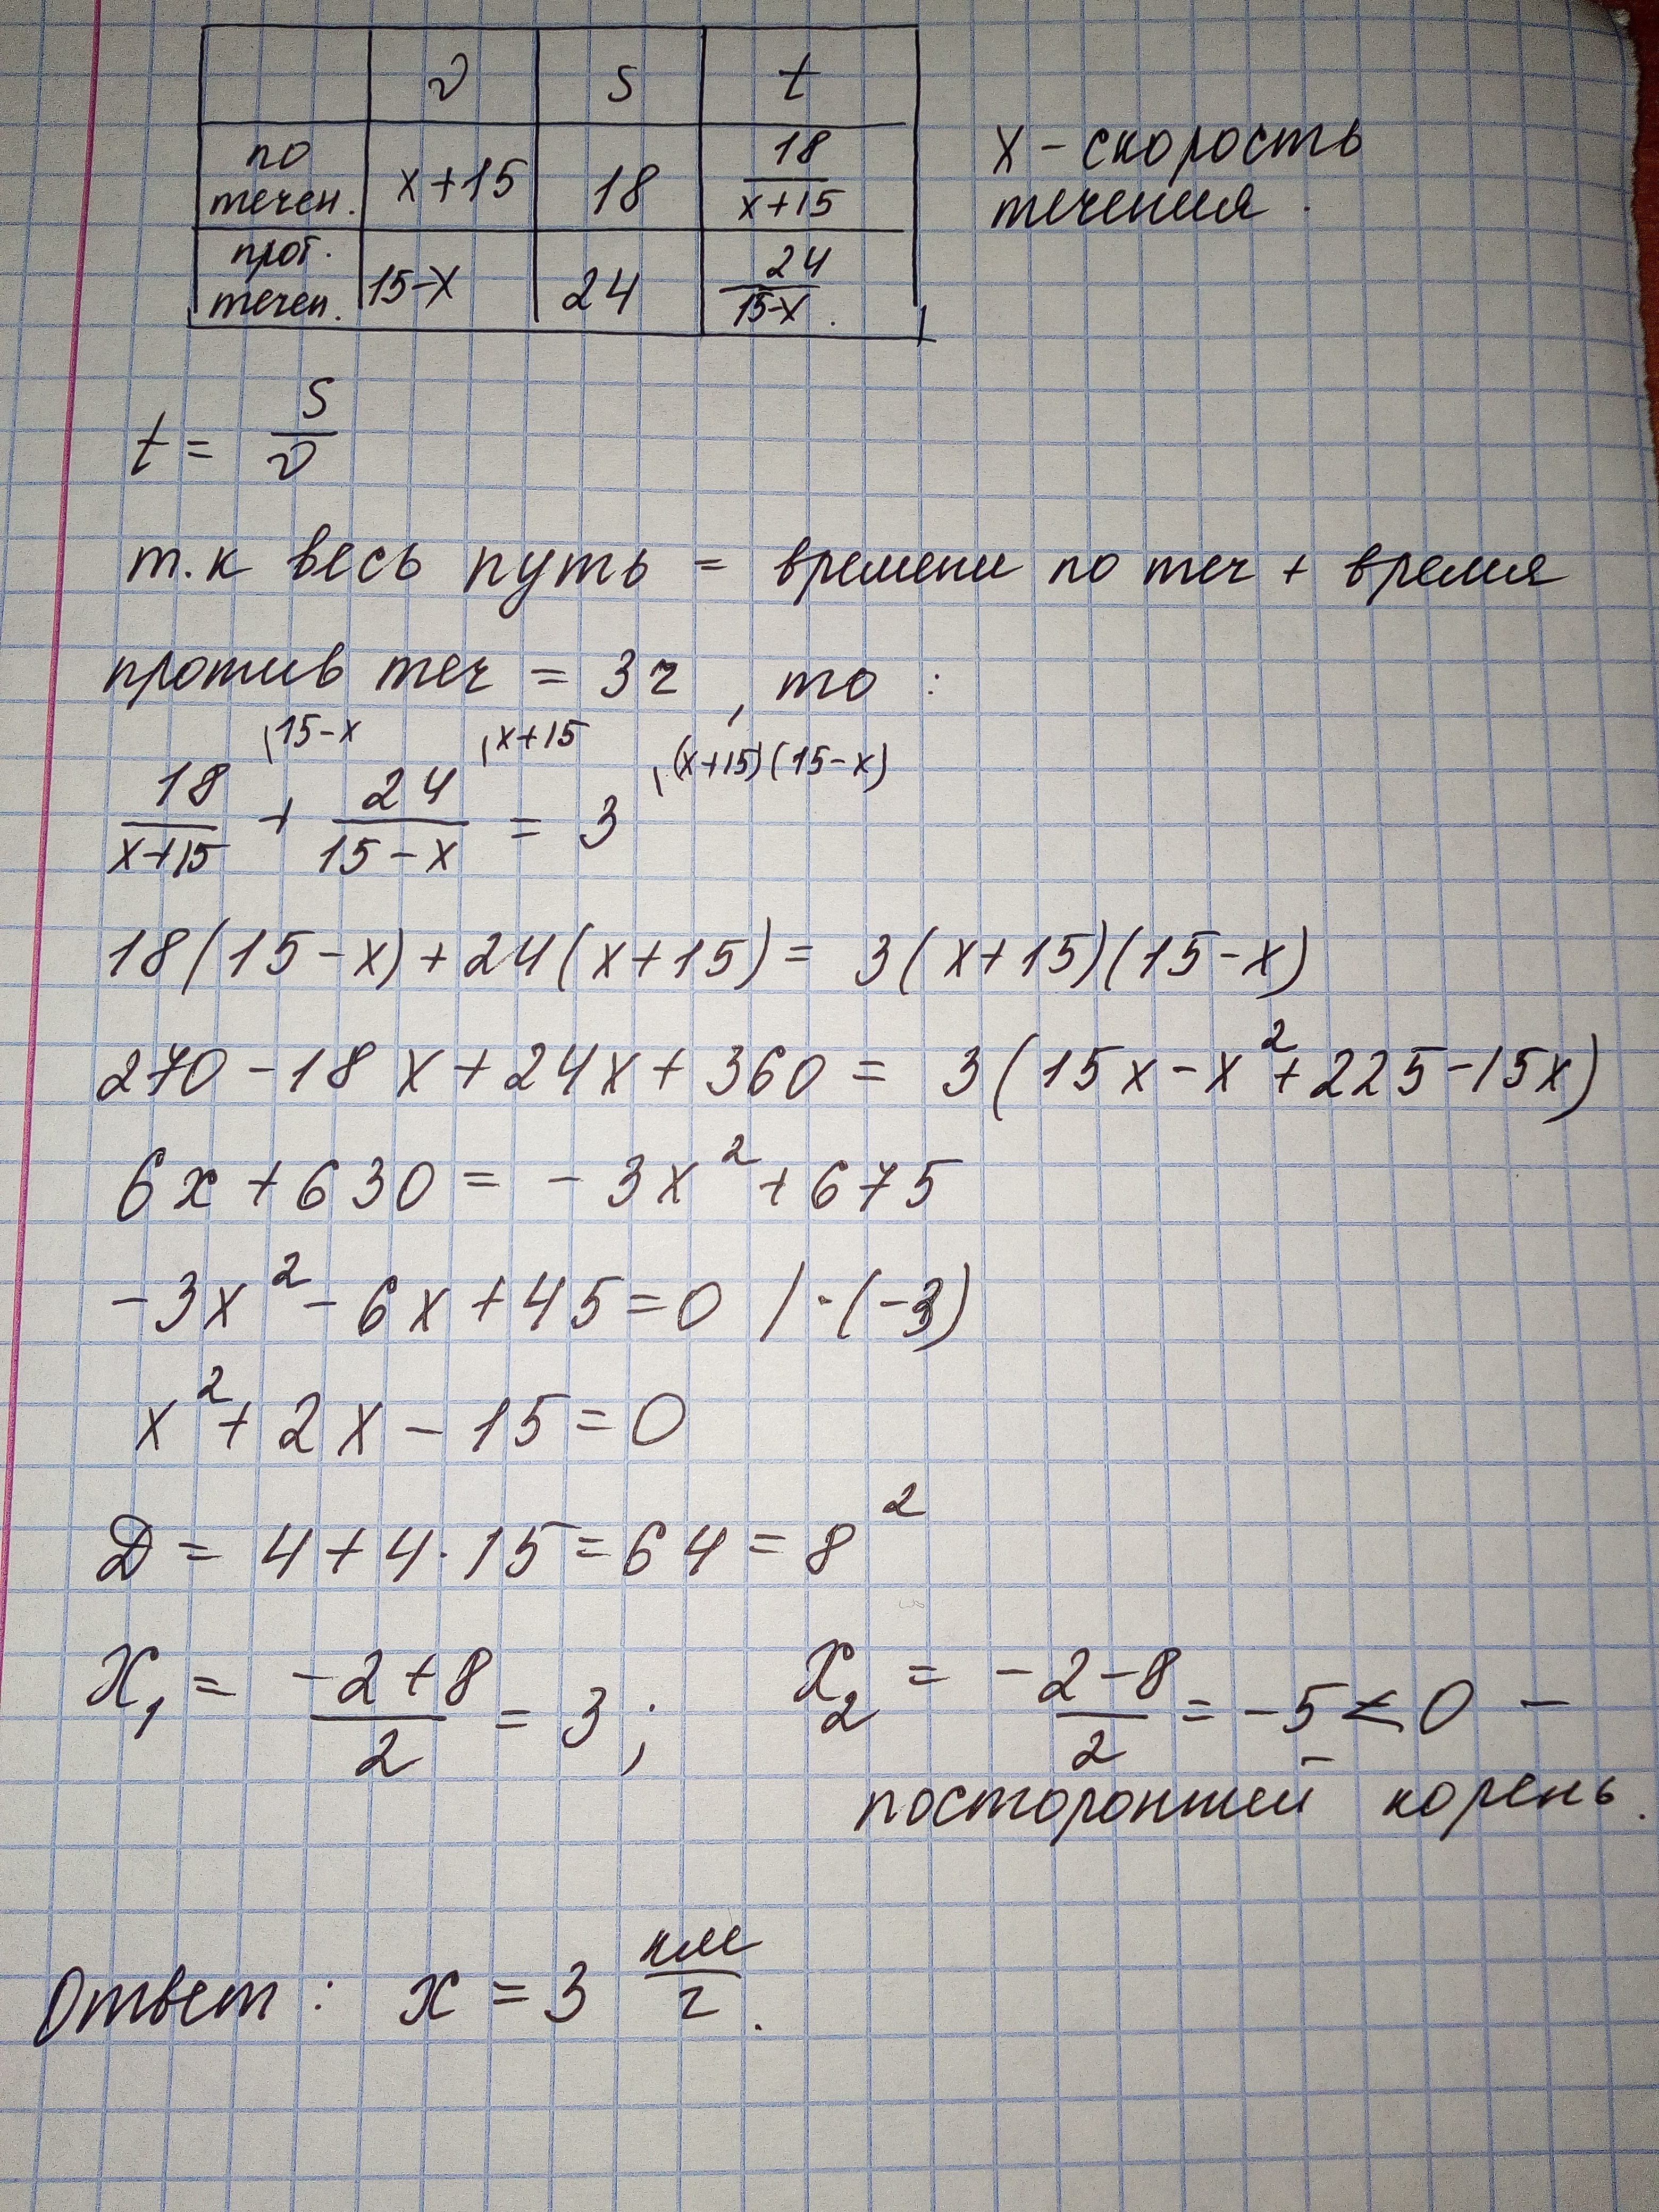 v s t
по течен. x+15 18 18/(x+15)
прот. течен. 15-x 24 24/(15-x).
x - скорость
течения.
t = s/v
т.к весь путь = времени по теч + время
против теч = 3ч, то:
18/(x+15) \15-x + 24/(15-x) \x+15 = 3 \(x+15)(15-x)
18(15-x)+24(x+15)= 3(x+15)(15-x)
270-18x+24x+360 = 3(15x-x²+225-15x)
6x+630= -3x²+675
-3x²-6x+45=0 /·(-3)
x²+2x-15=0
D = 4+4·15=64=8²
x₁ = (-2+8)/2 = 3; x₂ = (-2-8)/2 = -5<0 -
посторонний корень.
Ответ: x=3 км/ч.